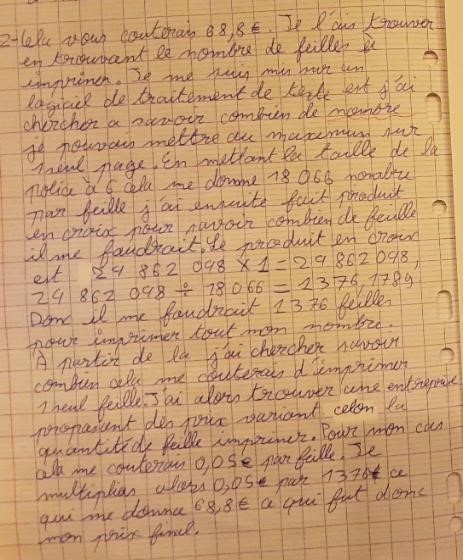 2- Cela vous couterais 68,8€. Je l'ais trouver
en trouvant le nombre de feilles à
imprimer. Je me suis mis sur un
logiciel de traitement de texte est j'ai
chercher a savoir combien de nombre
je pouvais mettre au maximum sur
1 seul page. En mettant la taille de la
police à 6 cela me donne 18 066 nombre
par feille j'ai ensuite fait produit
en croix pour savoir combien de feuille
il me faudrait. Le produit en croix
est 24 862 098 × 1 = 24 862 098,
24 862 098 ÷ 18 066 = 1 376,1789
Donc il me faudrait 1 376 feilles
pour imprimer tout mon nombre.
À partir de la j'ai chercher savoir
combien cela me couterais d'imprimer
1 seul feille. J'ai alors trouver une entreprise
proposent des prix variant celon la
quantité de feille imprimer. Pour mon cas
cela me couterais 0,05€ par feille. Je
multiplias alors 0,05€ par 1376€ ce
qui me donna 68,8€ ce qui fut donc
mon prix final.